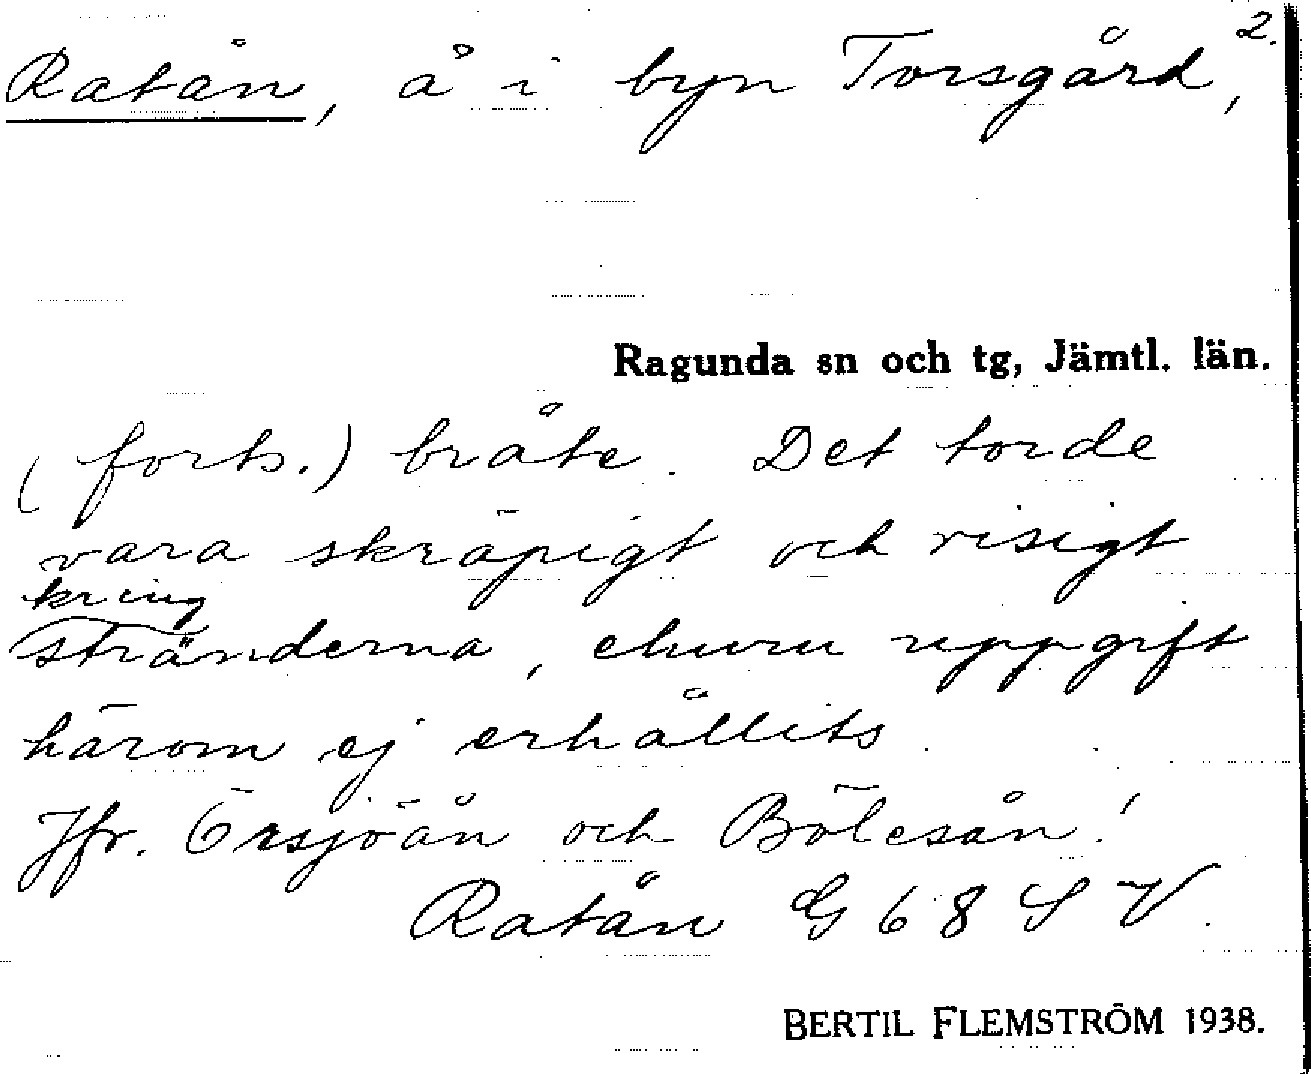 2.
Ratån, å i byn Torsgård,
Ragunda sn och tg, Jämtl. län.
(forts.) bråte. Det torde
vara skräpigt och risigt
kring
stränderna, ehuru uppgift
härom ej erhållits.
Jfr. Örsjöån och Bölesån!
Ratån G 68 S V.
BERTIL FLEMSTRÖM 1938.